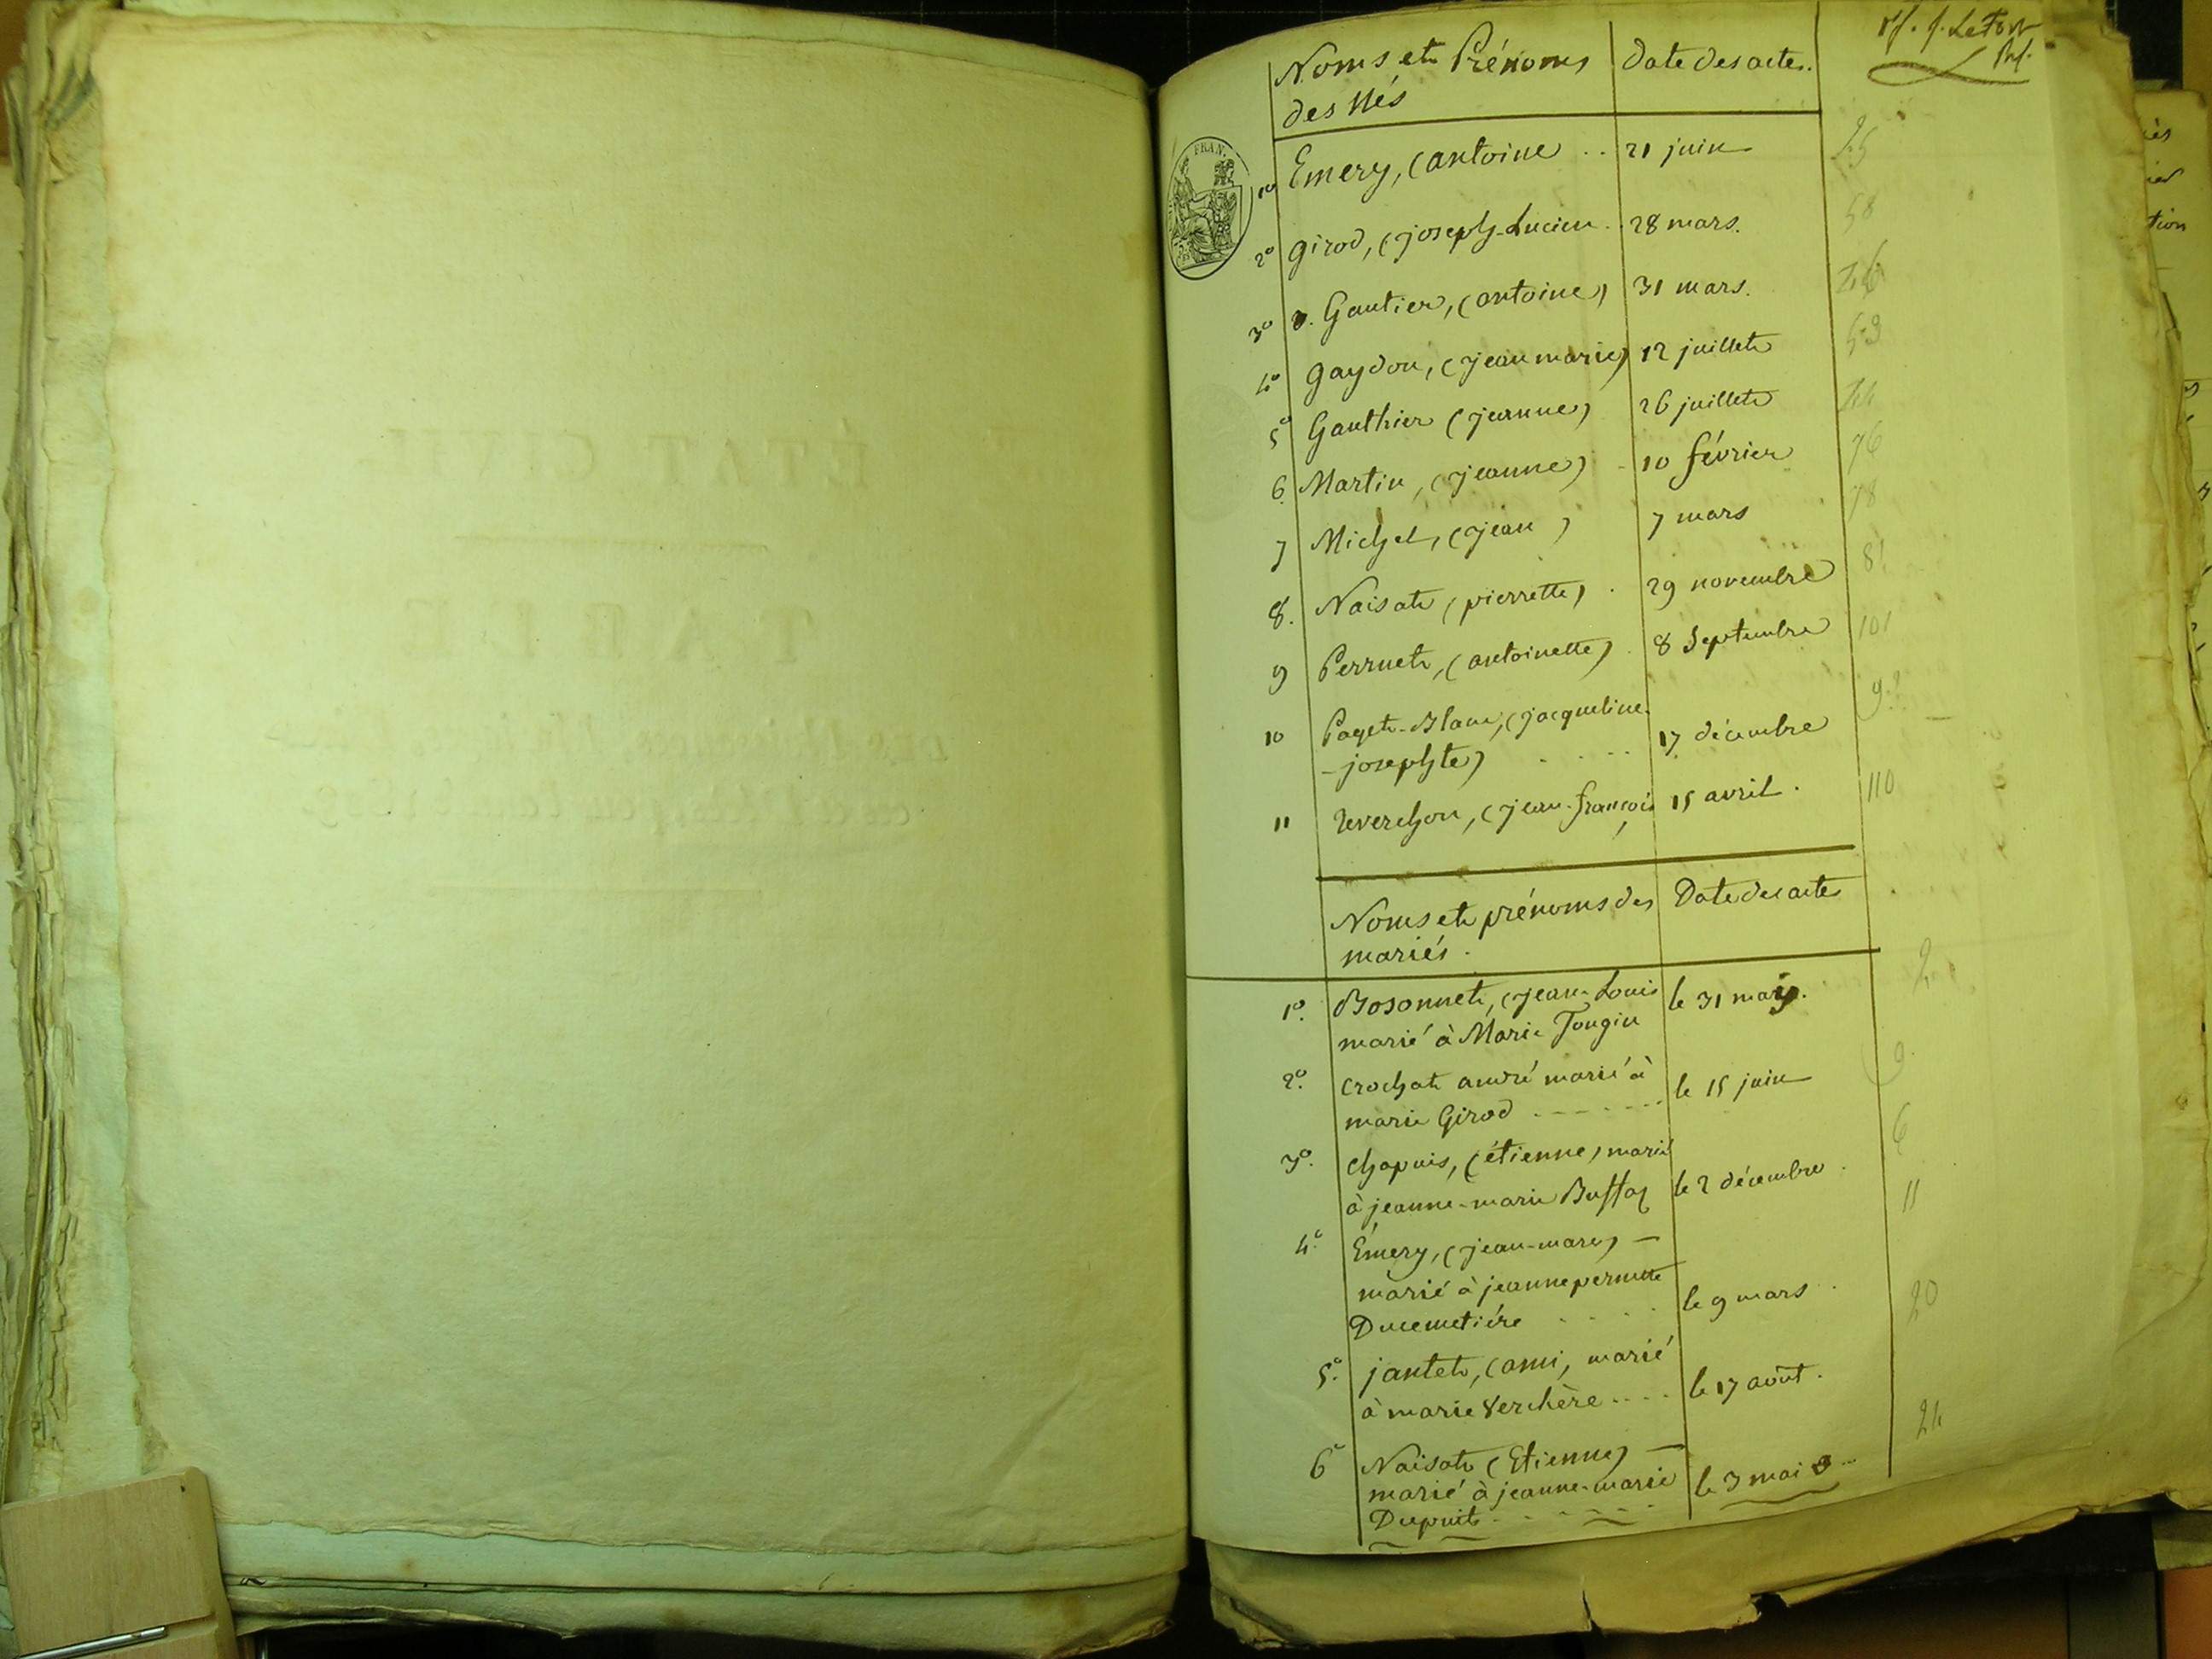 ÉTAT CIVIL
TABLE
Noms et Prénoms
des Nés
Date des actes.
FRAN.
1o Emery, (antoine .. 21 juin 25
2o girod, (joseph-Lucien . 28 mars. 58
3o . Gautier, (antoine) 31 mars. 46
4o gaydon, (jean marie) 12 juillet 53
5o Gauthier (jeanne) 26 juillet 44
6. Martin, (jeanne) - 10 février 76
7 Michel, (jean ) 7 mars 78
8. Naisat (pierrette) . 29 novembre 81
9 Perruet, (antoinette) . 8 Septembre 101
10 Paget-Blanc, (jacqueline-
-josephte) . . . . 17 décembre
11 Reverchon, (jean-françois 15 avril . 110
Noms et prénoms des
mariés .
Date des actes
1o. Bosonnet, (jean-Louis le 31 mai. 2
marié à Marie Tougin
2o. crochat andré marié à 9.
marie Girod - - - - - - le 15 juin
3o. chapuis, (étienne) marié 6
à jeanne-marie Buffaz le 2 décembre .
4o. Émery, (jean-marc) — 11
marié à jeanne pernette
Ducemetiére . . . . le 9 mars . 20
5o. jantet, (ami, marié
à marie Verchère .... le 17 août .
6o Naisat (Etienne) — 24
marié à jeanne-marie le 3 mai
Dupuit